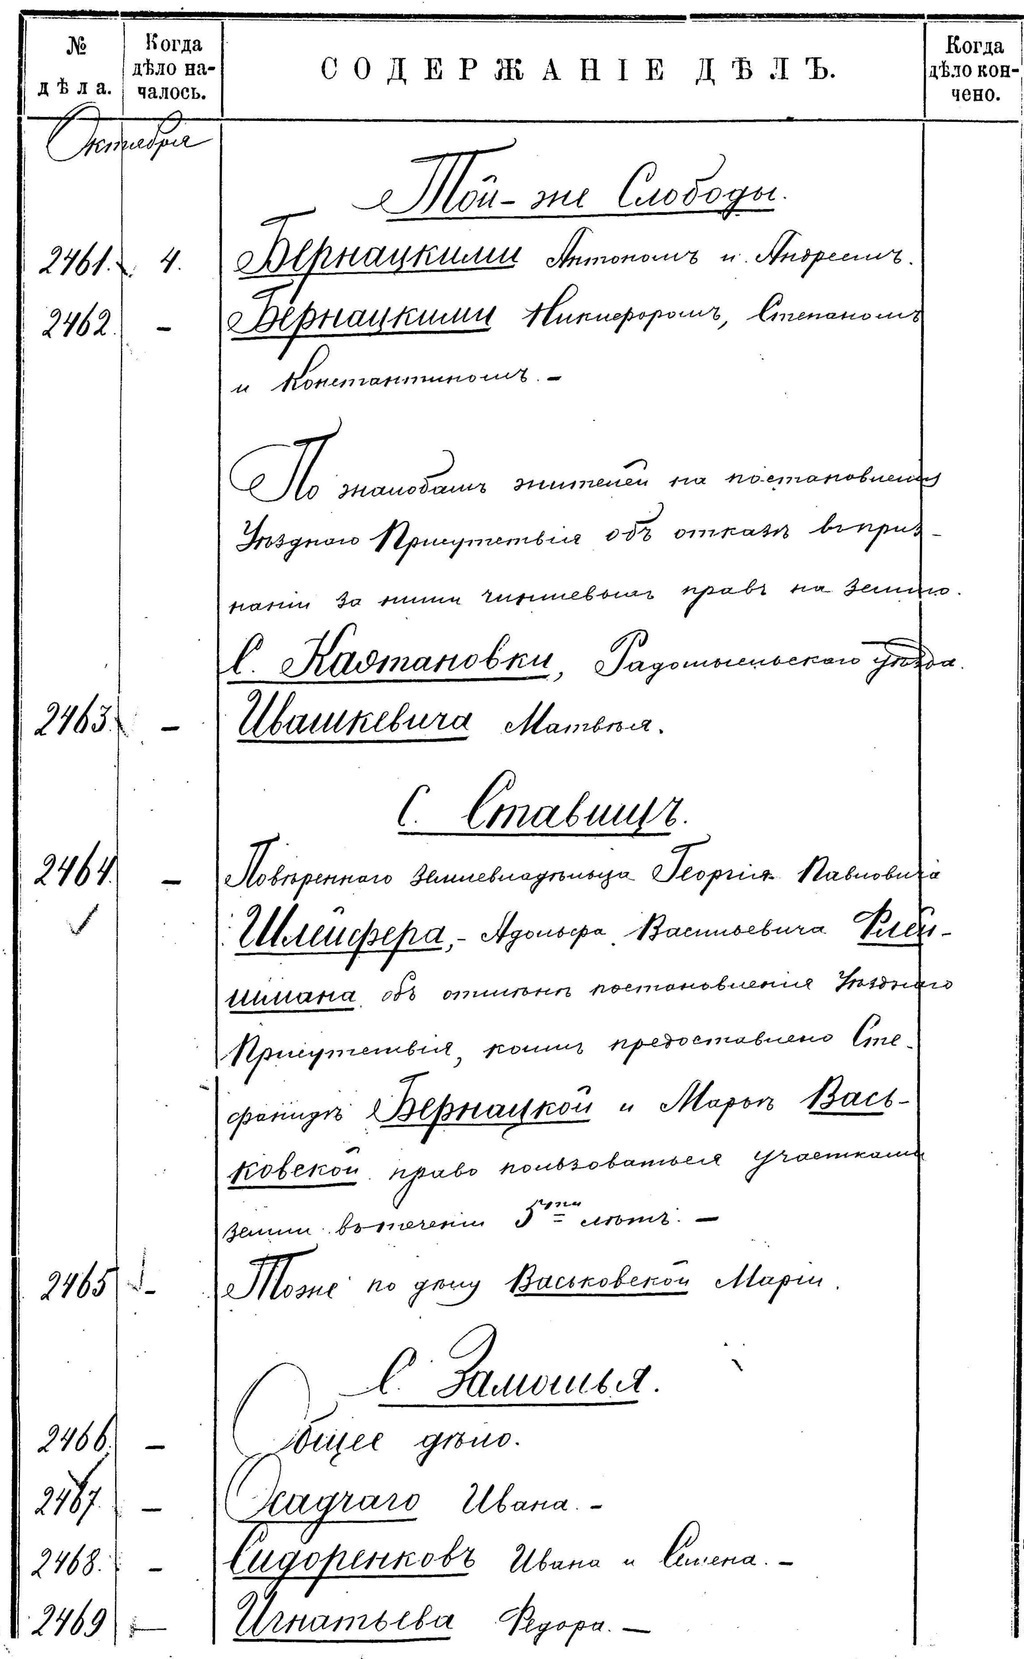 № дѣла.
Когда дѣло началось.
СОДЕРЖАНІЕ ДѢЛЪ.
Когда дѣло кончено.
Октября
Той-же Слободы.
2461. 4. Бернацкими Антономъ и Андреемъ.
2462. — Бернацкими Никифоромъ, Степаномъ
и Константиномъ. —
По жалобамъ жителей на постановленія
Уѣзднаго Присутствія объ отказѣ въ приз-
наніи за ними чиншевыхъ правъ на землю.
С. Каѳтановки, Радомысльскаго уѣзда.
2463. — Ивашкевича Матвѣя.
С. Ставищъ.
2464. — Повѣреннаго землевладѣльца Георгія Павловича
Шлейфера, - Адольфа Васильевича Флей-
шмана объ отмѣнѣ постановленія Уѣзднаго
Присутствія, коимъ предоставлено Сте-
фанидѣ Бернацкой и Марьѣ Вась-
ковской право пользоваться участками
земли въ теченіи 5ти лѣтъ. —
2465 - Тоже по дѣлу Васьковской Маріи.
С. Замошья.
2466. — Общее дѣло.
2467. — Осадчаго Ивана. -
2468. — Сидоренковъ Ивана и Семена. —
2469 — Игнатьева Федора. —